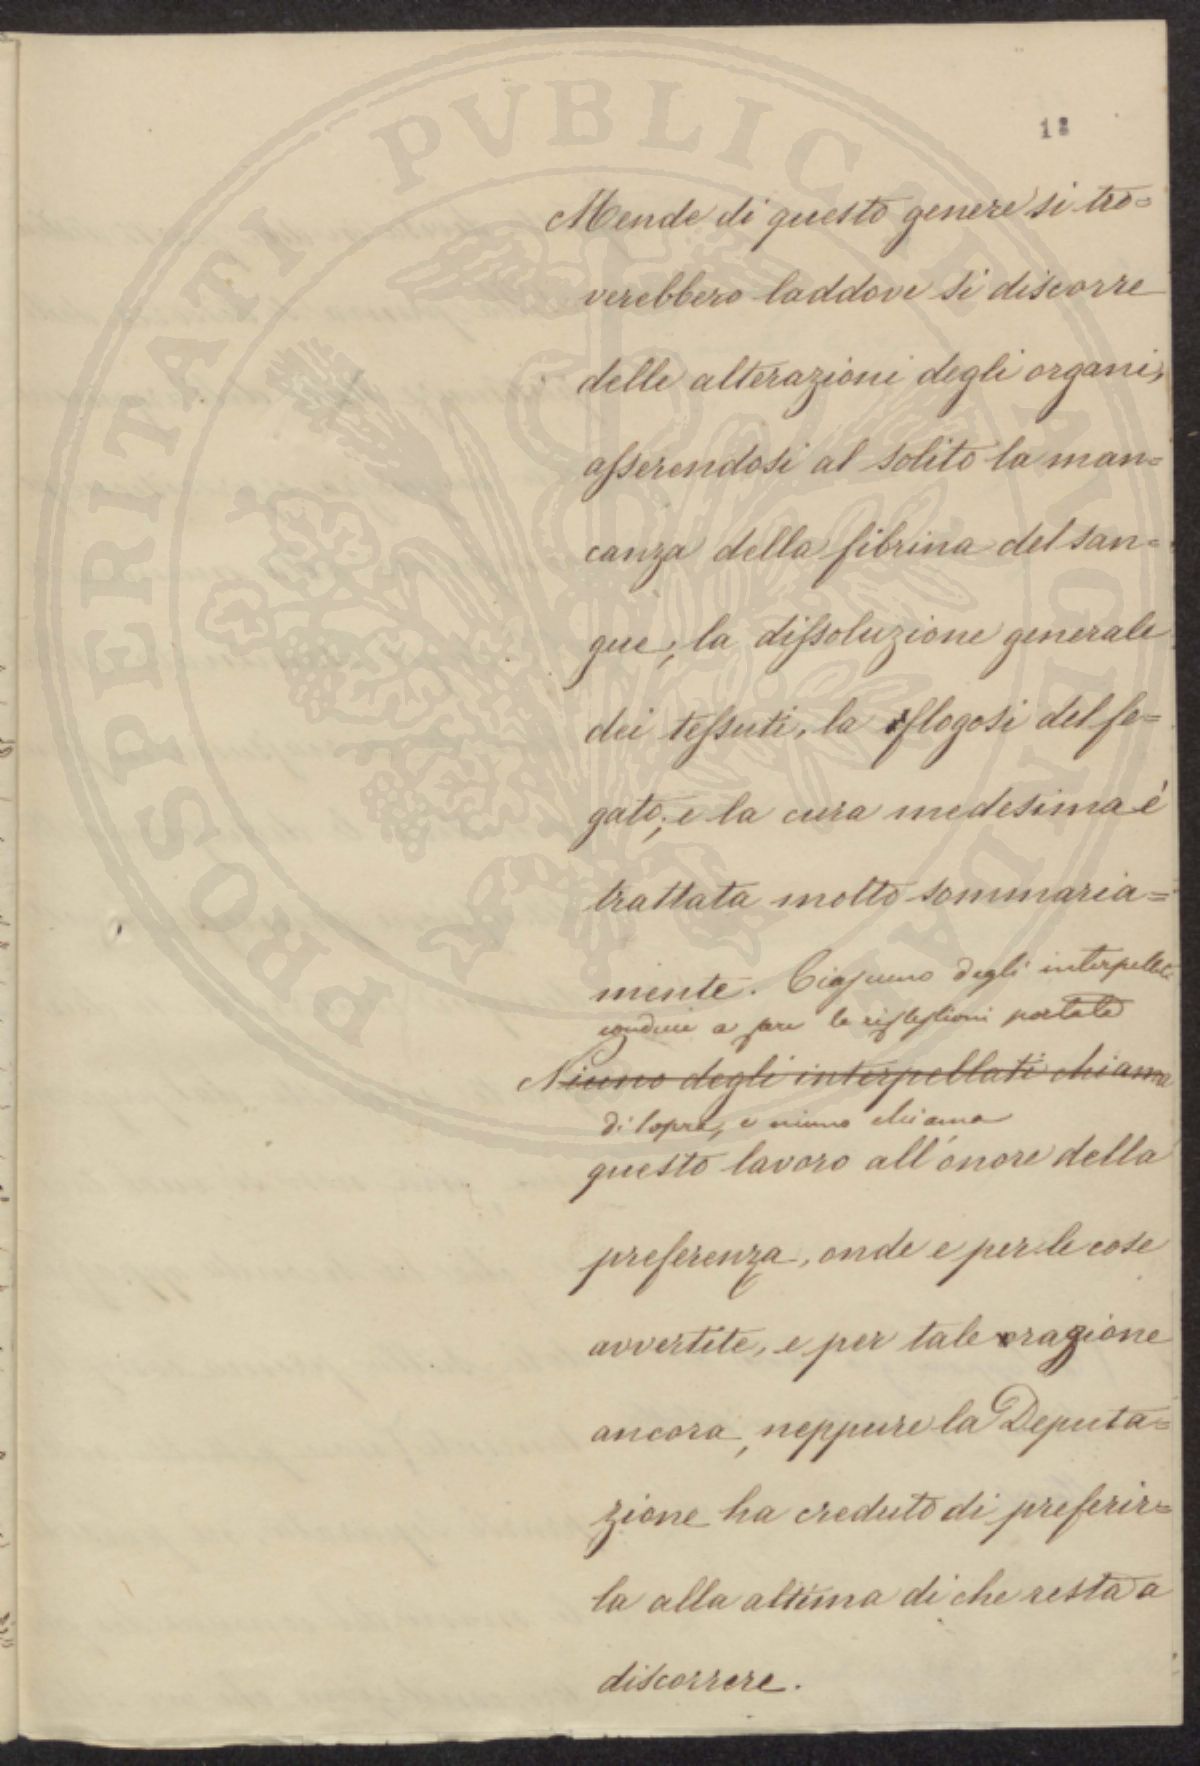 PROSPERITATI PUBLICAE AUGENDAE
18
Mende di questo genere si tro=
verebbero laddove si discorre
delle alterazioni degli organi,
asserendosi al solito la man=
canza della fibrina del san=
gue, la dissoluzione generale
dei tessuti, la flogosi del fe=
gato; e la cura medesima è
trattata molto sommaria=
mente. Ciascuno degli interpellati
conviene a fare le riflessioni portate
Niuno degli interpellati chiama
di sopra, e niuno chiama
questo lavoro all'onore della
preferenza, onde e per le cose
avvertite, e per tale ragione
ancora, neppure la Deputa=
zione ha creduto di preferir=
la alla altima di che resta a
discorrere.